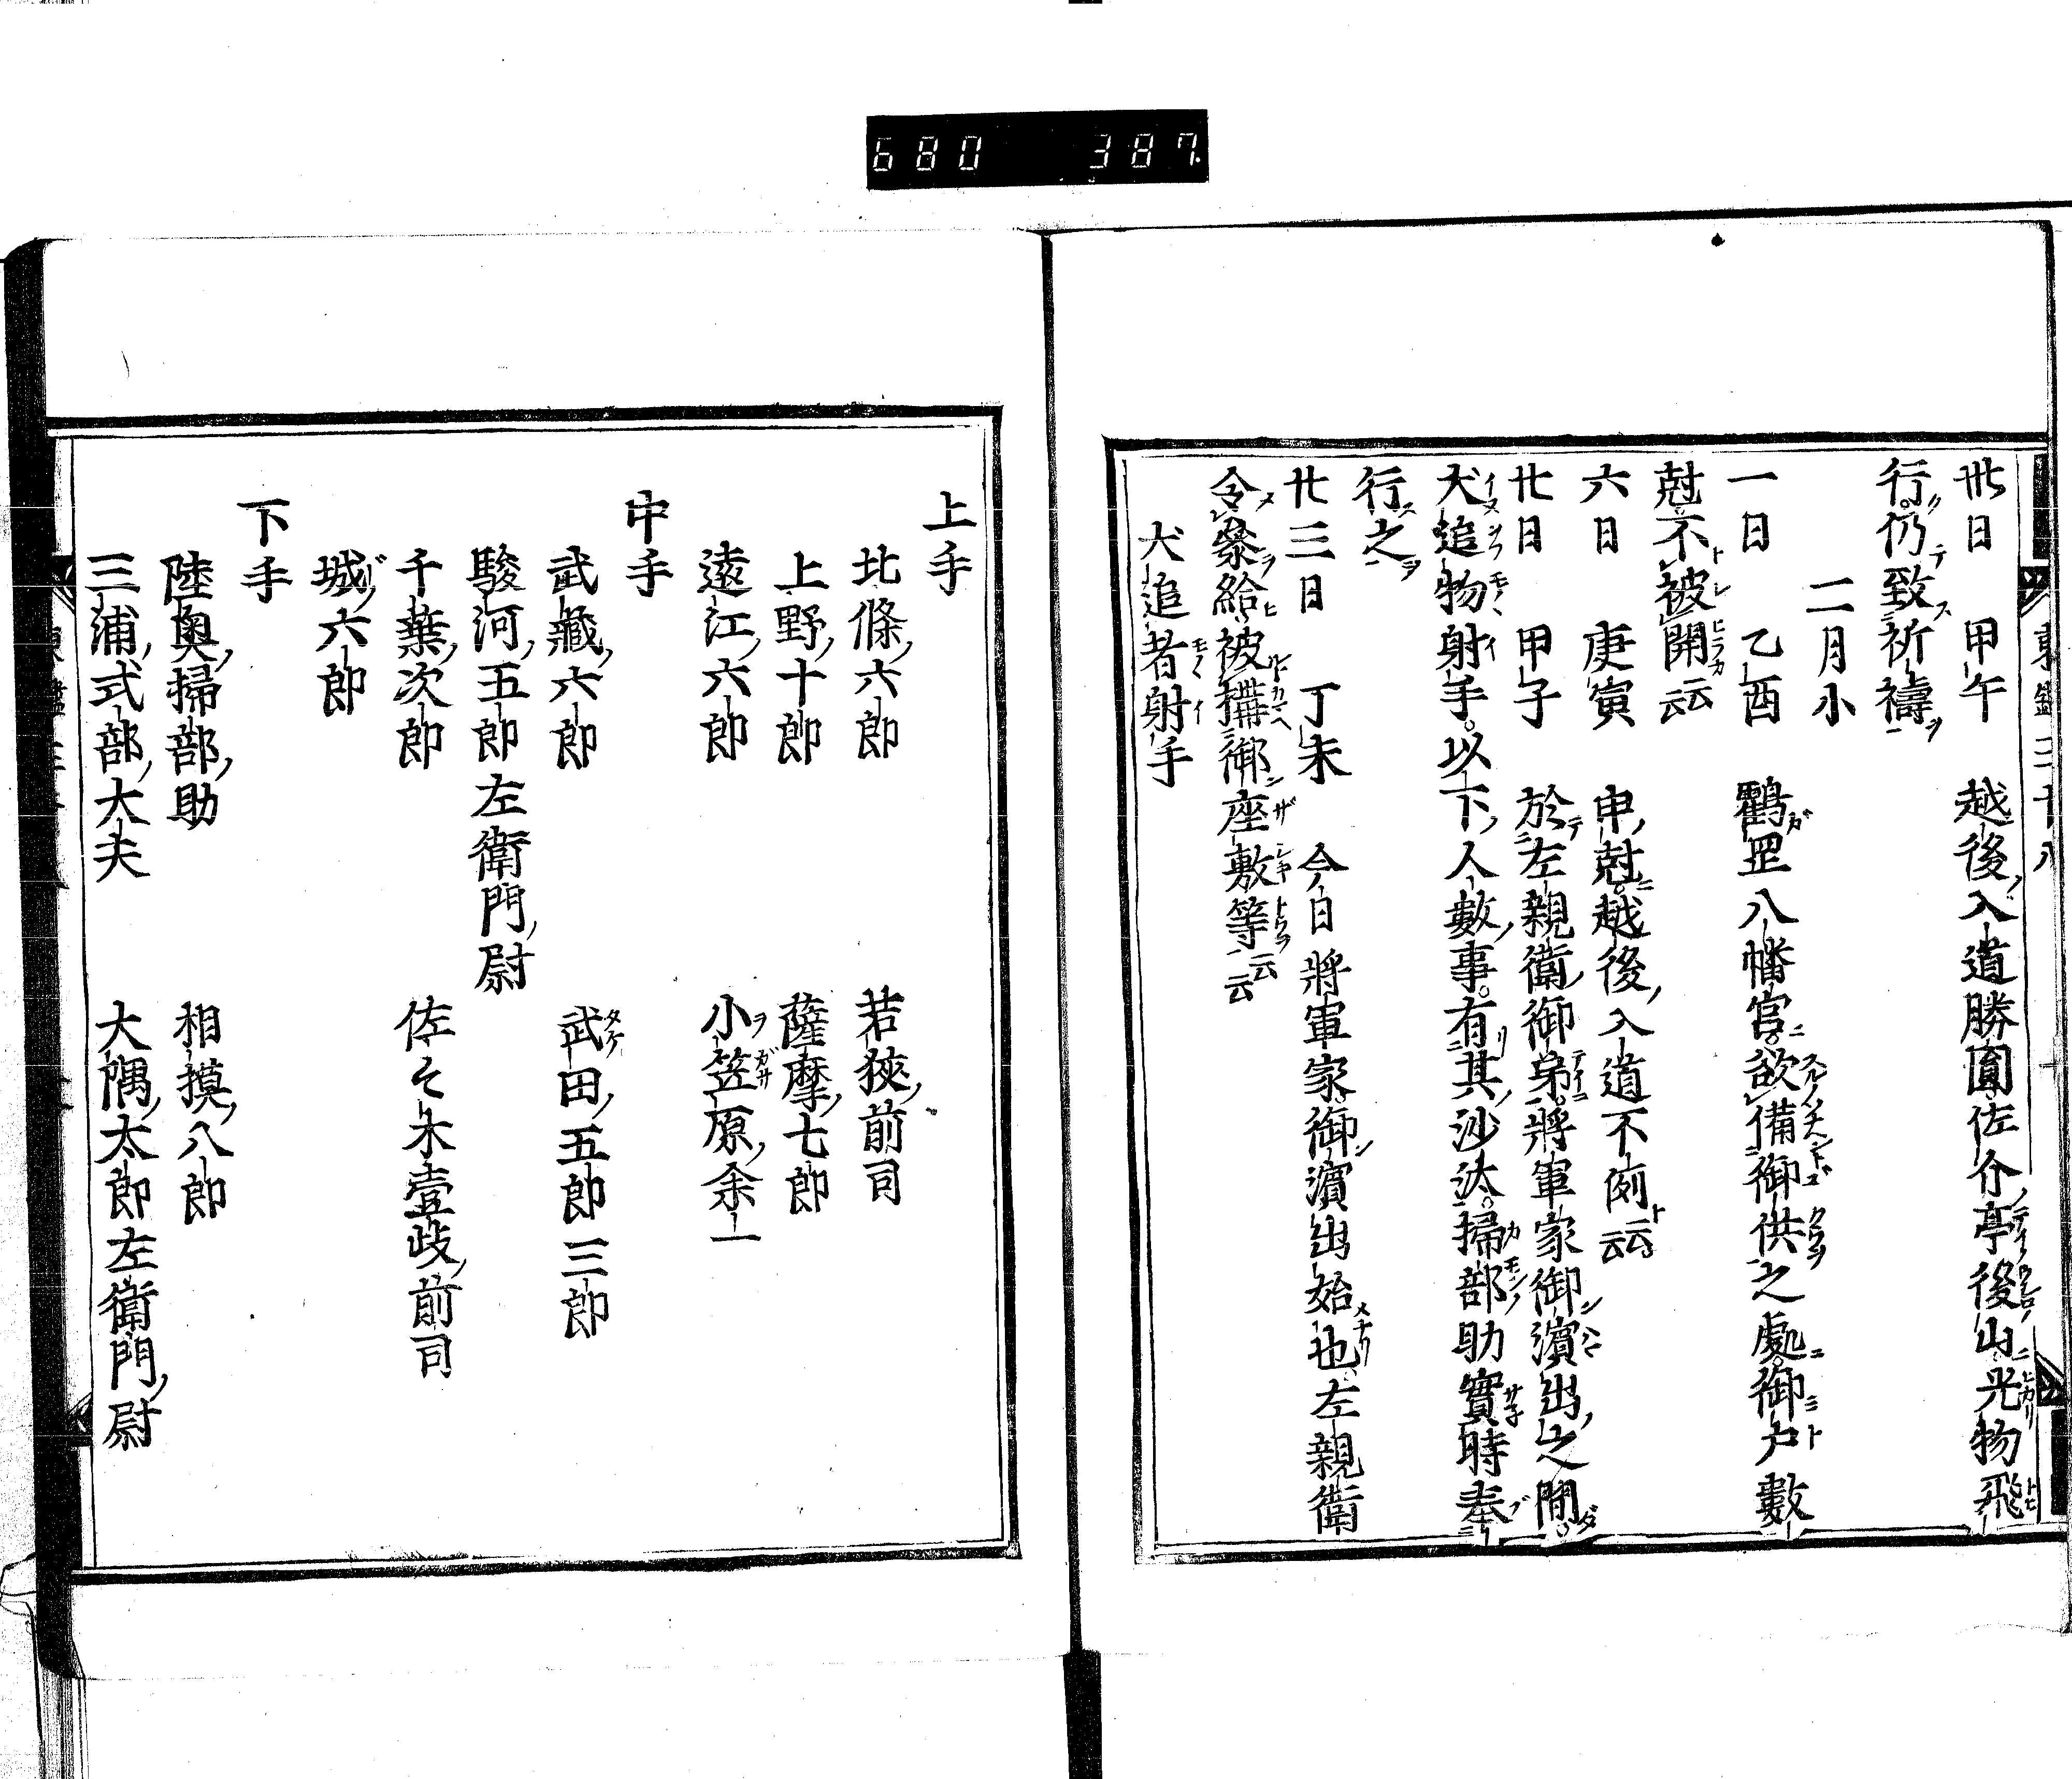 680 387
卅日 甲午 越後入道勝圓佐介亭後山光物飛
行仍致祈禱
二月小
一日 乙酉 鶴罡八幡宮欲備御供之處御戶數
尅不被開云云
六日 庚寅 申尅越後入道不例云云
廿日 甲子 於左親衛御弟將軍家御濱出之間
犬追物射手以下人數事有其沙汰掃部助實時奉
行之
廿三日 丁未 今日將軍家御濱出始也左親衛
令祭給被搆御座敷等云云
犬追者射手
上手
北條六郎 若狹前司
上野十郎 薩摩七郎
遠江六郎 小笠原余一
中手
武藏六郎 武田五郎三郎
駿河五郎左衛門尉
千葉次郎 佐々木壹歧前司
城六郎
下手
陸奧掃部助 相摸八郎
三浦式部大夫 大隅太郎左衛門尉